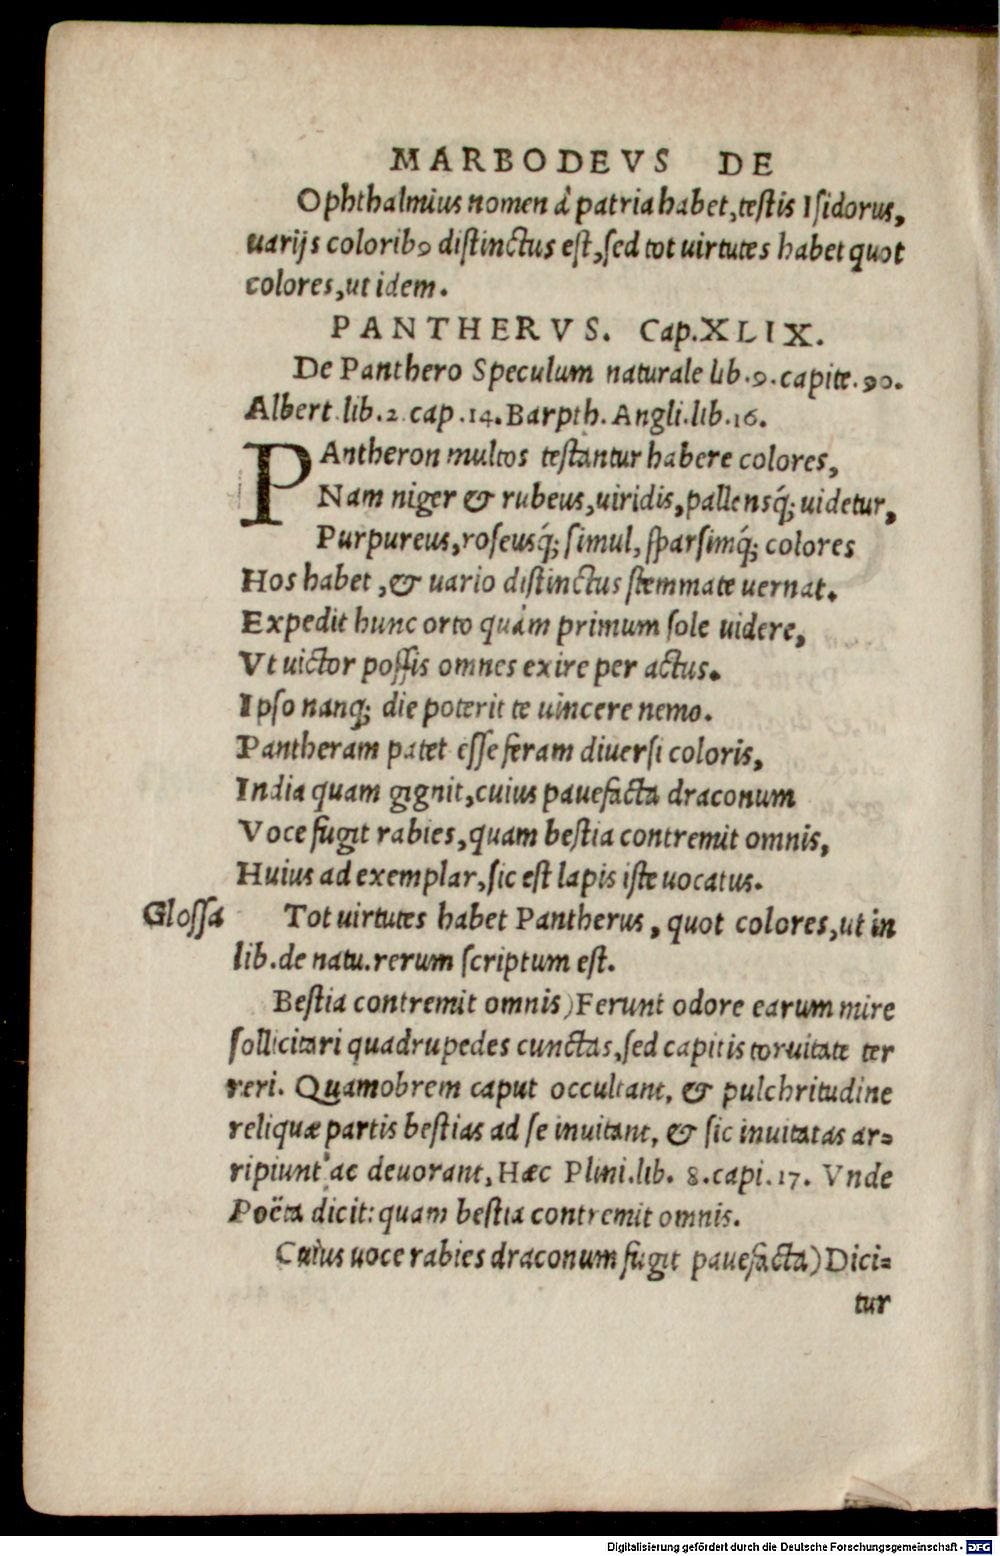 MARBODEVS DE
Ophthalmius nomen à patria habet, testis Isidorus,
uarijs coloribꝰ distinctus est, sed tot uirtutes habet quot
colores, ut idem.
PANTHERVS. Cap. XLIX.
De Panthero Speculum naturale lib. 9. capite. 90.
Albert lib. 2 cap. 14. Barpth. Angli. lib. 16.
PAntheron multos testantur habere colores,
Nam niger & rubeus, uiridis, pallensq́; uidetur,
Purpureus, roseusq́; simul, sparsimq́; colores
Hos habet, & uario distinctus stemmate uernat.
Expedit hunc orto quàm primum sole uidere,
Vt uictor possis omnes exire per actus.
Ipso nanq; die poterit te uincere nemo.
Pantheram patet esse feram diuersi coloris,
India quam gignit, cuius pauefacta draconum
Voce fugit rabies, quam bestia contremit omnis,
Huius ad exemplar, sic est lapis iste uocatus.
Glossa Tot uirtutes habet Pantherus, quot colores, ut in
lib. de natu. rerum scriptum est.
Bestia contremit omnis) Ferunt odore earum mire
sollicitari quadrupedes cunctas, sed capitis toruitate ter
reri. Quamobrem caput occultant, & pulchritudine
reliquæ partis bestias ad se inuitant, & sic inuitatas ar-
ripiunt ac deuorant, Hæc Plini. lib. 8. capi. 17. Vnde
Poëta dicit: quam bestia contremit omnis.
Cuius uoce rabies draconum fugit pauefacta) Dici-
tur
Digitalisierung gefördert durch die Deutsche Forschungsgemeinschaft - DFG